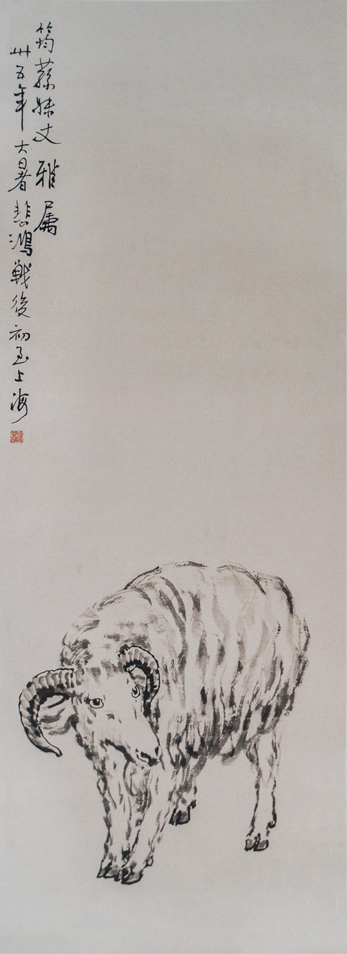 筠蓀妹丈雅屬
卅五年大暑悲鴻戰後初至上海